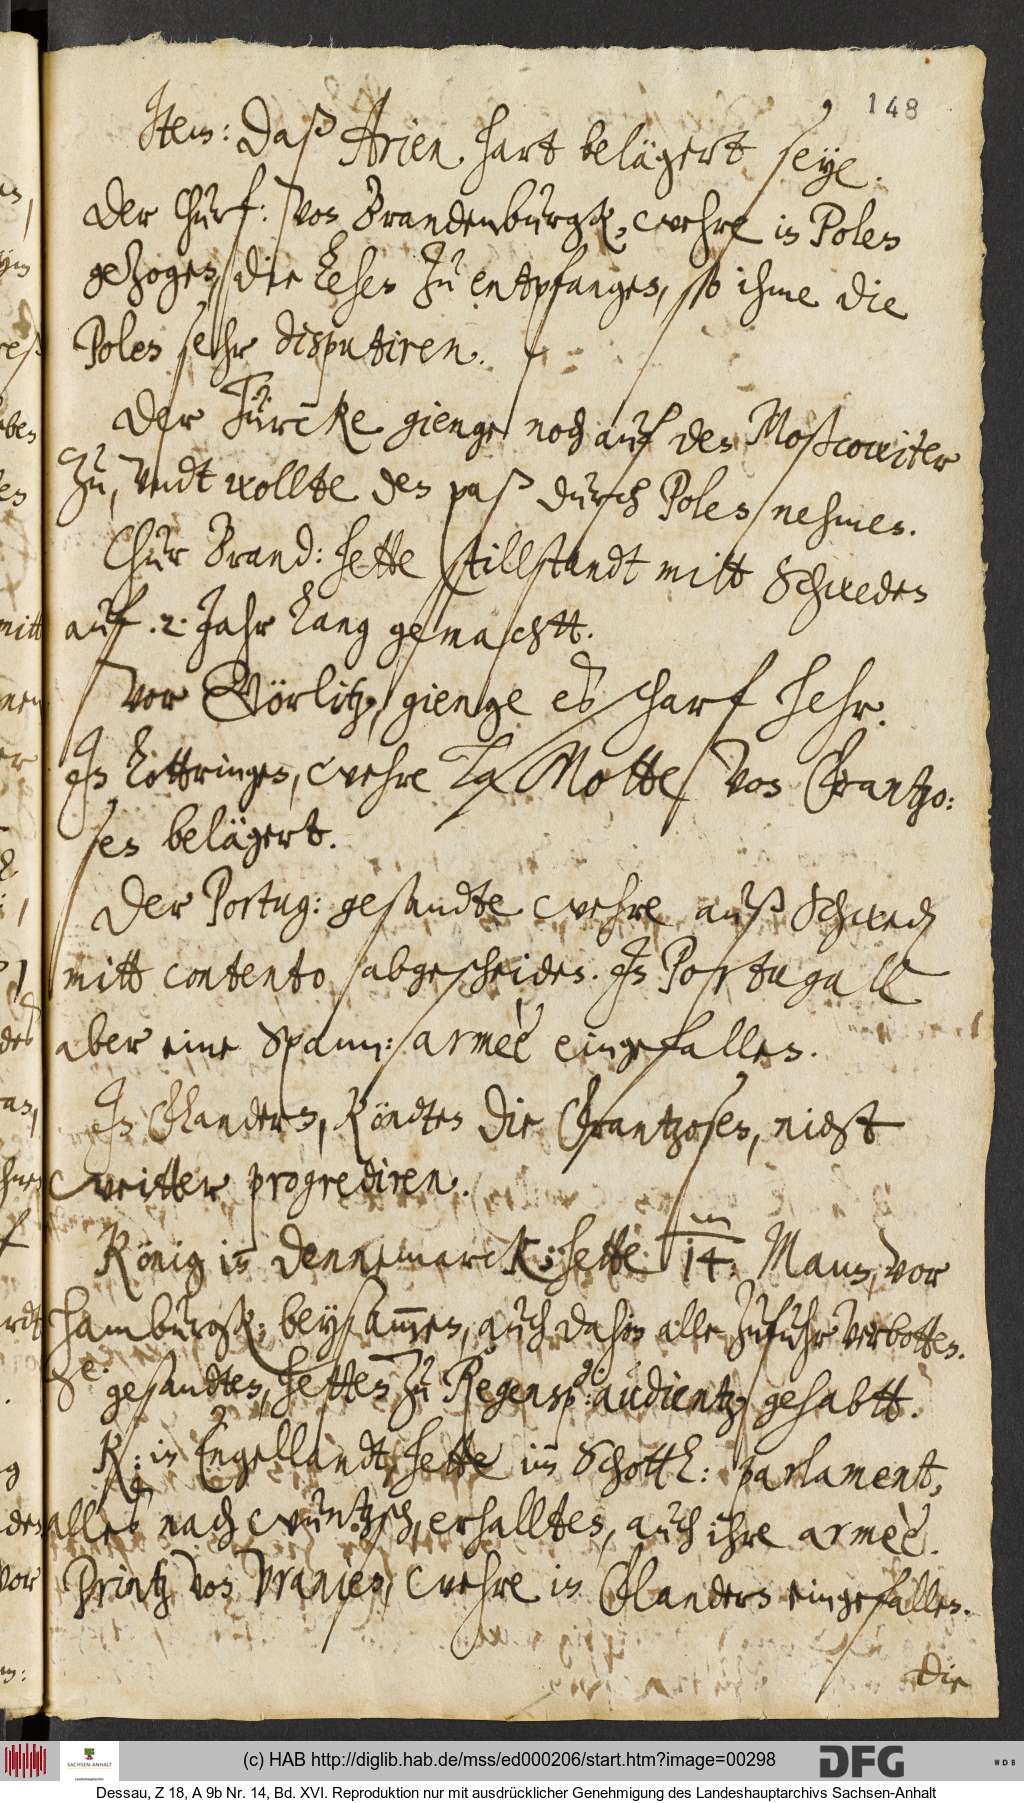 148
Item: daß Arien hart belägert seye.
Der Churf: von Brandenburgk, wehre in Polen
gezogen, die Lehen zu entpfangen, so ihme die
Polen sehr disputiren.
Der Türcke gienge noch auf den Moßcowiter
zu, undt wollte den paß durch Polen nehmen.
Chur Brand: hette stillstandt mitt Schweden
auf .2. Jahr lang gemachtt.
Vor Görlitz, gienge es scharf hehr.
In Lottringen, wehre La Motte von Frantzo:
sen belägert.
Der Portug: gesandte wehre auß Schwed(en)
mitt contento abgescheiden. In Portugall
aber eine Spann: armèè eingefallen.
In Flandern, köndten die Frantzosen, nicht
weitter progrediren.
König in Dennemarck; hette 14. m Mann, vor
Hamburgk; beysammen, auch dahin alle zufuhr verbotten.
Se. gesandten, hetten zu Regensp: audientz gehabtt.
K: in Engellandt hette im Schottl: parlament,
alles nach wuntzsch, erhallten, auch ihre armèè.
Printz von Uranien, wehre in Flandern eingefallen.
Die
(c) HAB http://diglib.hab.de/mss/ed000206/start.htm?image=00298
SACHSEN-ANHALT
DFG
WDB
Dessau, Z 18, A 9b Nr. 14, Bd. XVI. Reproduktion nur mit ausdrücklicher Genehmigung des Landeshauptarchivs Sachsen-Anhalt